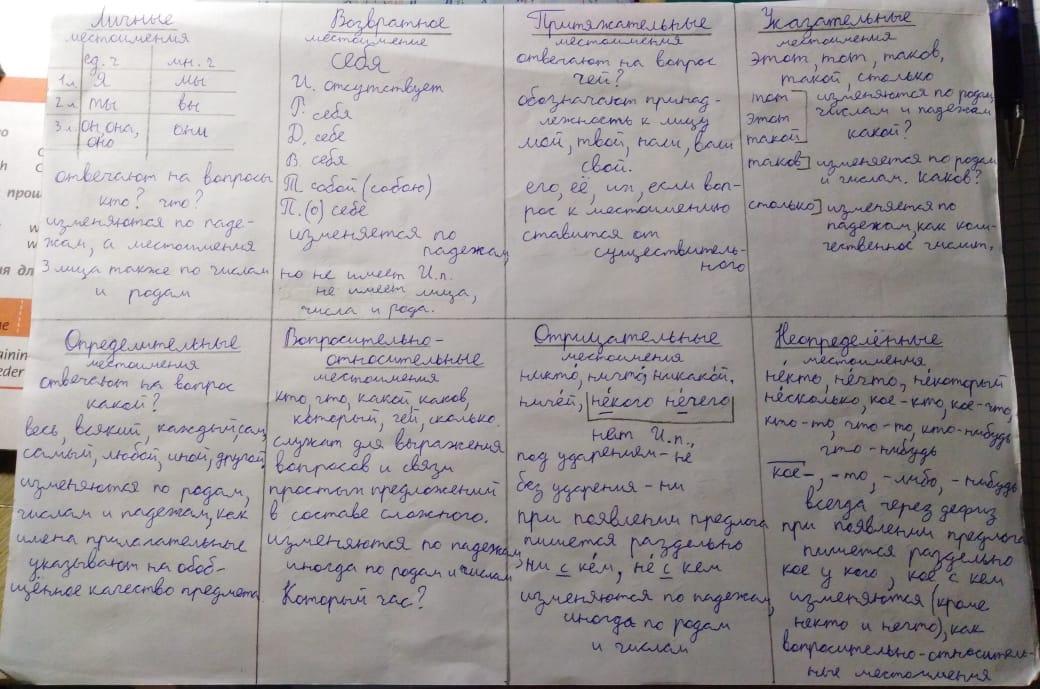 Личные
местоимения
ед. ч мн. ч
1 л. Я мы
2 л ты вы
3 л. он, она, они
оно
отвечают на вопросы
кто? что?
изменяются по паде-
жам, а местоимения
3 лица также по числам
и родам
Возвратное
местоимение
себя
И. отсутствует
Р. себя
Д. себе
В себя
Т собой (собою)
П. (о) себе
изменяется по
падежам
но не имеет И.п.
не имеет лица,
числа и рода.
Притяжательные
местоимения
отвечают на вопрос
чей?
обозначают принад-
лежность к лицу
мой, твой, наш, ваш
свой.
его, её, их, если воп-
рос к местоимению
ставится от
существитель-
ного
Указательные
местоимения
этот, тот, таков,
такой, столько
тот
этот
такой
изменяются по родам,
числам и падежам
какой?
таков] изменяется по родам
и числам. Каков?
столько] изменяется по
падежам, как коли-
чественное числит.
Определительные
местоимения
отвечают на вопрос
какой?
весь, всякий, каждый, сам,
самый, любой, иной, другой
изменяются по родам,
числам и падежам, как
имена прилагательные
указывают на обоб-
щённое качество предмета.
Вопросительно-
относительные
местоимения
кто, что, какой, каков,
который, чей, сколько.
служат для выражения
вопросов и связи
простых предложений
в составе сложного.
изменяются по падежам,
иногда по родам и числам
Который час?
Отрицательные
местоимения
никто́, ничто́, никако́й,
ниче́й, не́кого не́чего
нет И.п.,
под ударением - не
без ударения - ни
при появлении предлога
пишется раздельно
ни с ке́м, не́ с кем
изменяются по падежам,
иногда по родам
и числам
Неопределённые
местоимения
не́кто, не́что, не́который
не́сколько, кое-кто, кое-что,
кто-то, что-то, кто-нибудь
что-нибудь
кое-, -то, -либо, -нибудь
всегда через дефиз
при появлении предлога
пишется раздельно
кое у кого, кое с кем
изменяются (кроме
некто и нечто), как
вопросительно-относитель-
ные местоимения